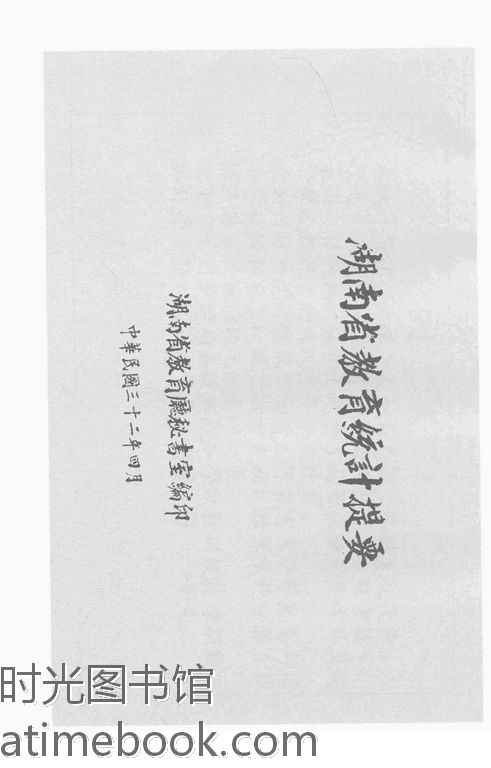 湖南省教育統計提要
湖南省教育廳秘書室編印
中華民國三十二年四月
时光图书馆
atimebook.com